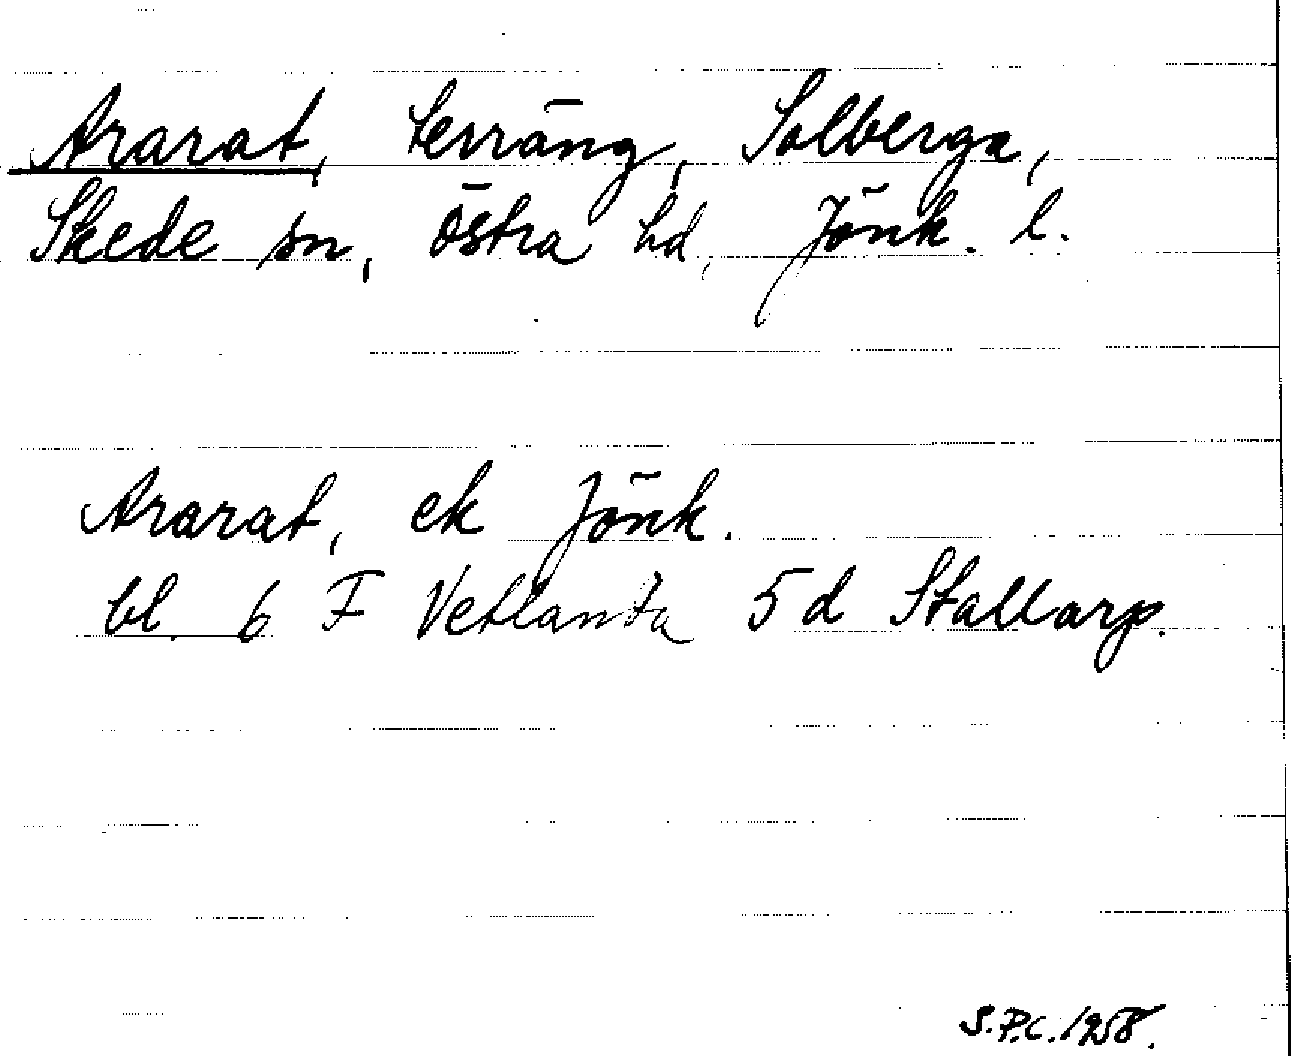 Ararat, terräng, Solberga,
Skede sn, Östra hd, Jönk. l.
Ararat, ek Jönk.
bl. 6 F Vetlanda 5 d Stallarp.
S.P.C. 1958.